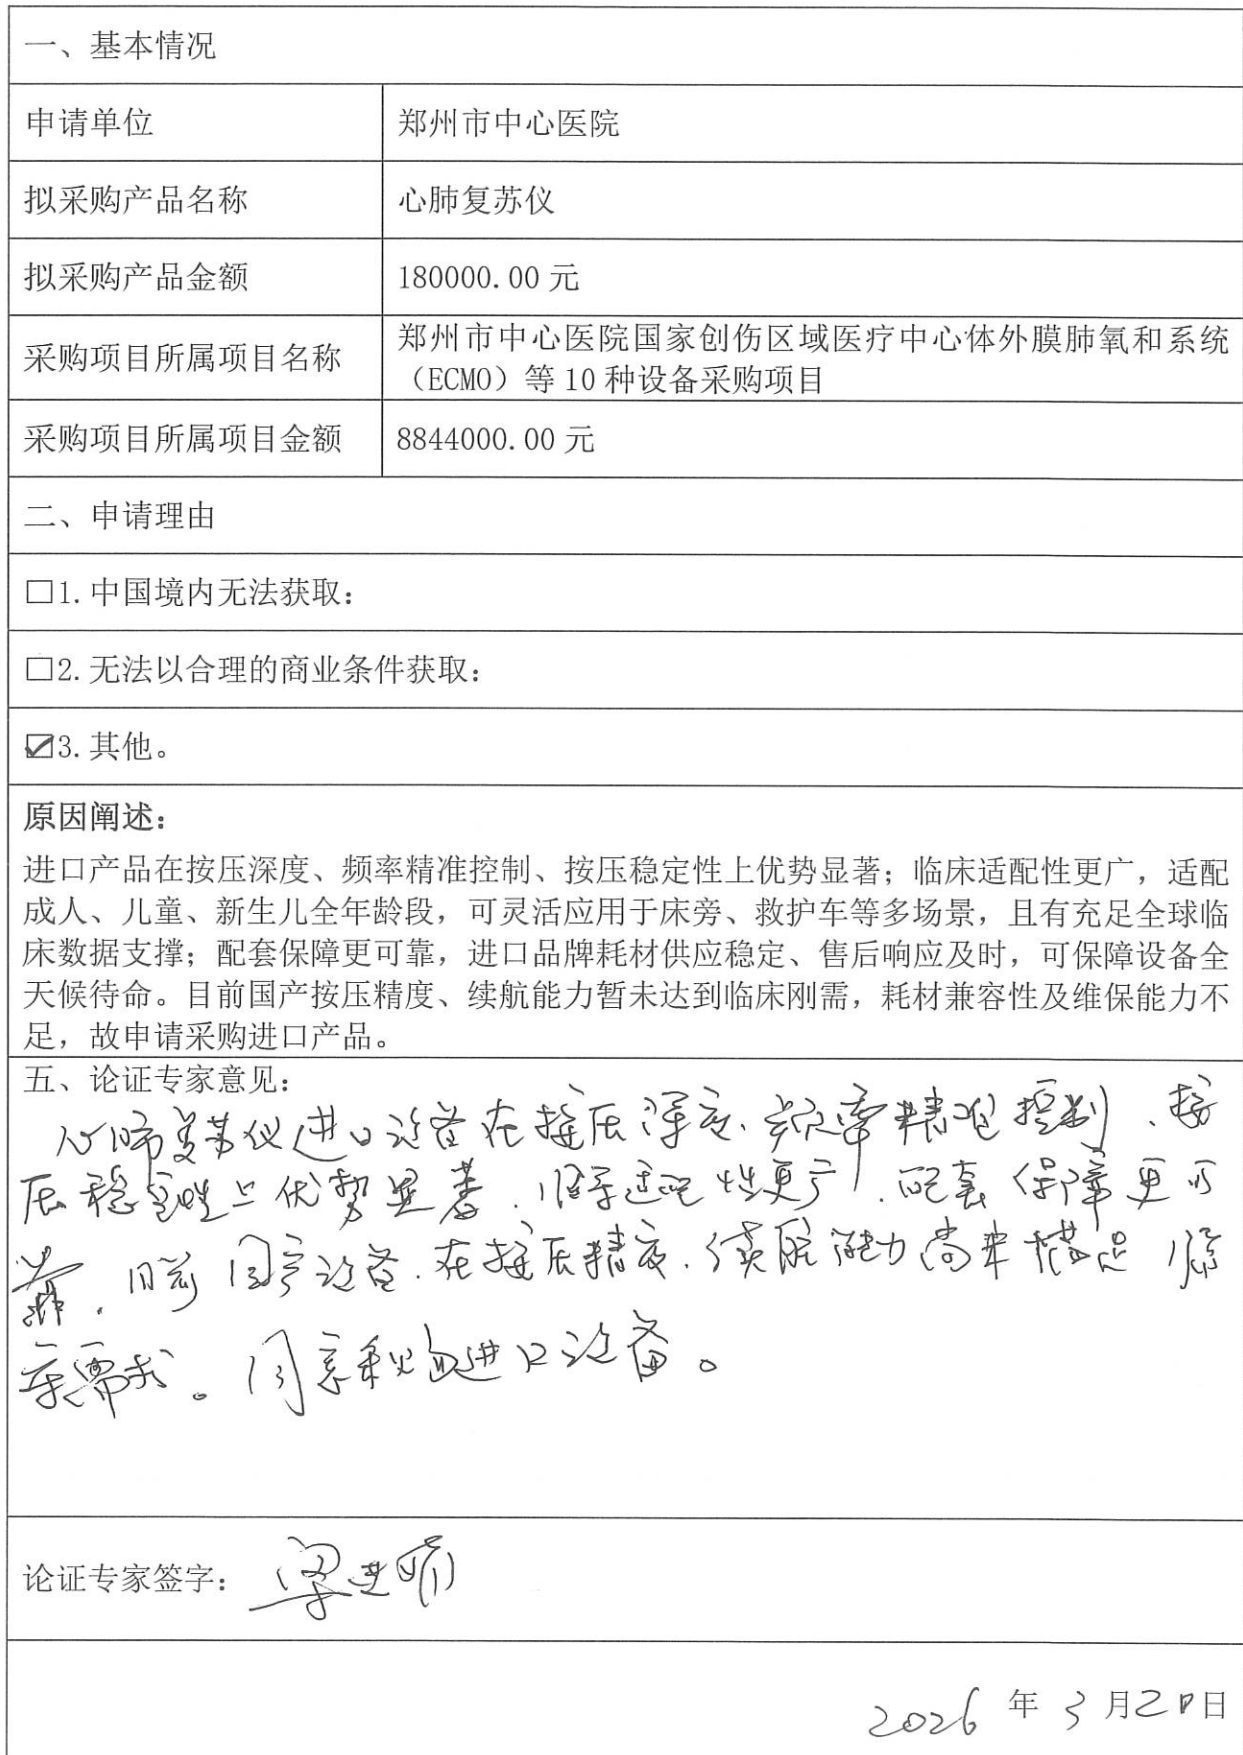 一、基本情况
申请单位 郑州市中心医院
拟采购产品名称 心肺复苏仪
拟采购产品金额 180000.00 元
采购项目所属项目名称 郑州市中心医院国家创伤区域医疗中心体外膜肺氧和系统
（ECMO）等 10 种设备采购项目
采购项目所属项目金额 8844000.00 元
二、申请理由
□1. 中国境内无法获取：
□2. 无法以合理的商业条件获取：
☑3. 其他。
原因阐述：
进口产品在按压深度、频率精准控制、按压稳定性上优势显著；临床适配性更广，适配
成人、儿童、新生儿全年龄段，可灵活应用于床旁、救护车等多场景，且有充足全球临
床数据支撑；配套保障更可靠，进口品牌耗材供应稳定、售后响应及时，可保障设备全
天候待命。目前国产按压精度、续航能力暂未达到临床刚需，耗材兼容性及维保能力不
足，故申请采购进口产品。
五、论证专家意见：
心肺复苏仪进口设备在按压深度、频率精准控制、按
压稳定性上优势显著，临床适配性更广，配套保障更可
靠，目前国产设备在按压精度、续航能力尚未满足临
床需求。同意采购进口设备。
论证专家签字：
2026 年 3 月 日